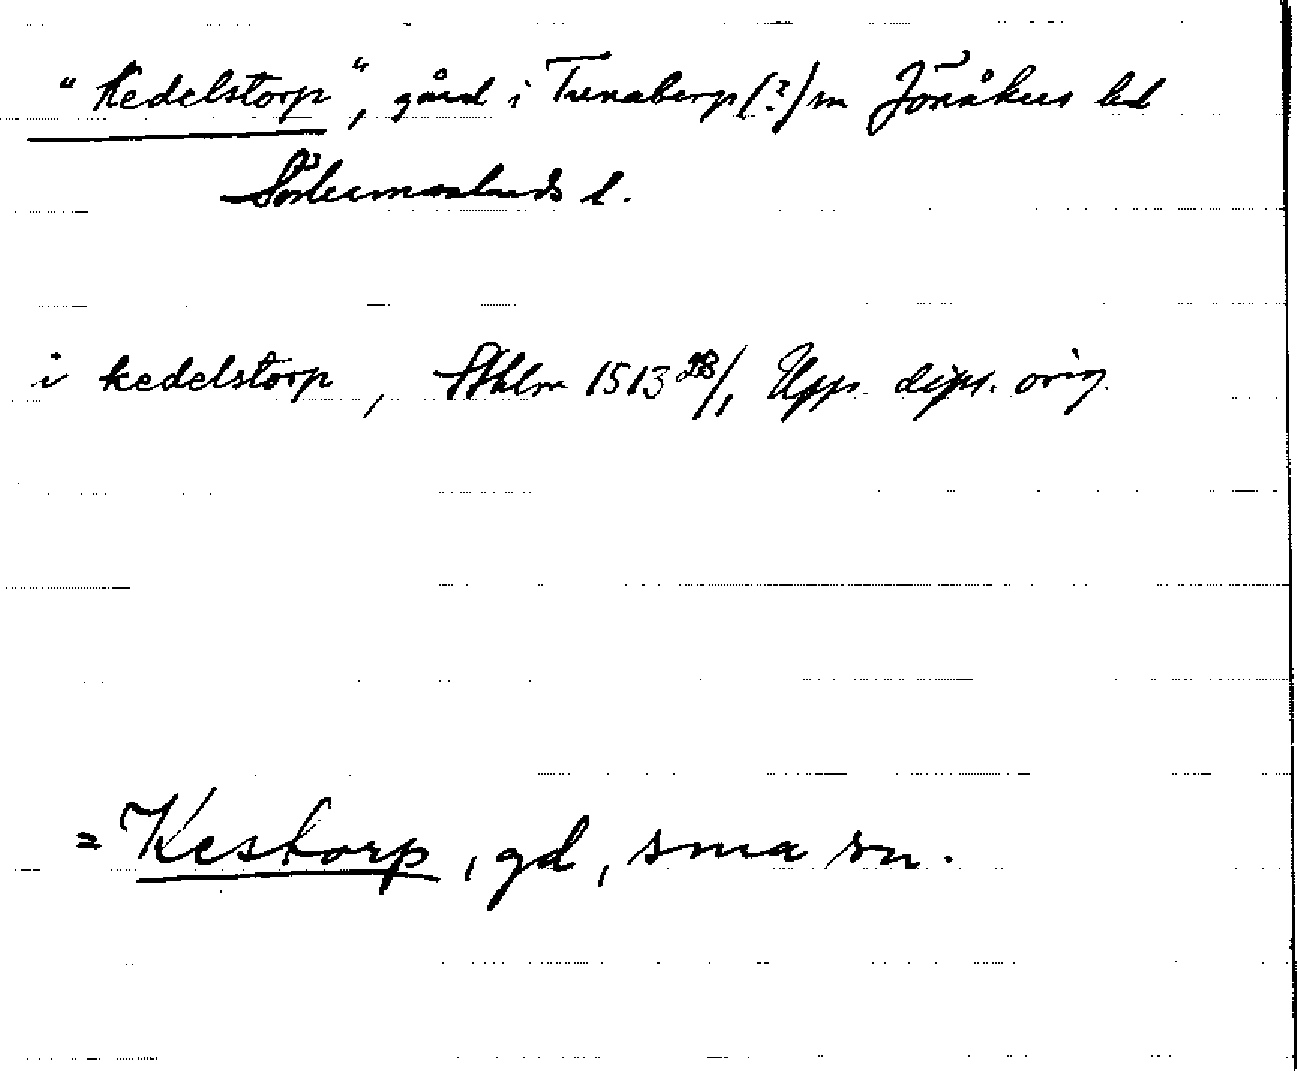 "Kedelstorp", gård i Tunaberg(?) sn Jönåkers hd
Södermanlands l.
i kedelstorp, Sthlm 1513 28/1 Upps. dipl. orig.
= Kestorp, gd, sma sn.